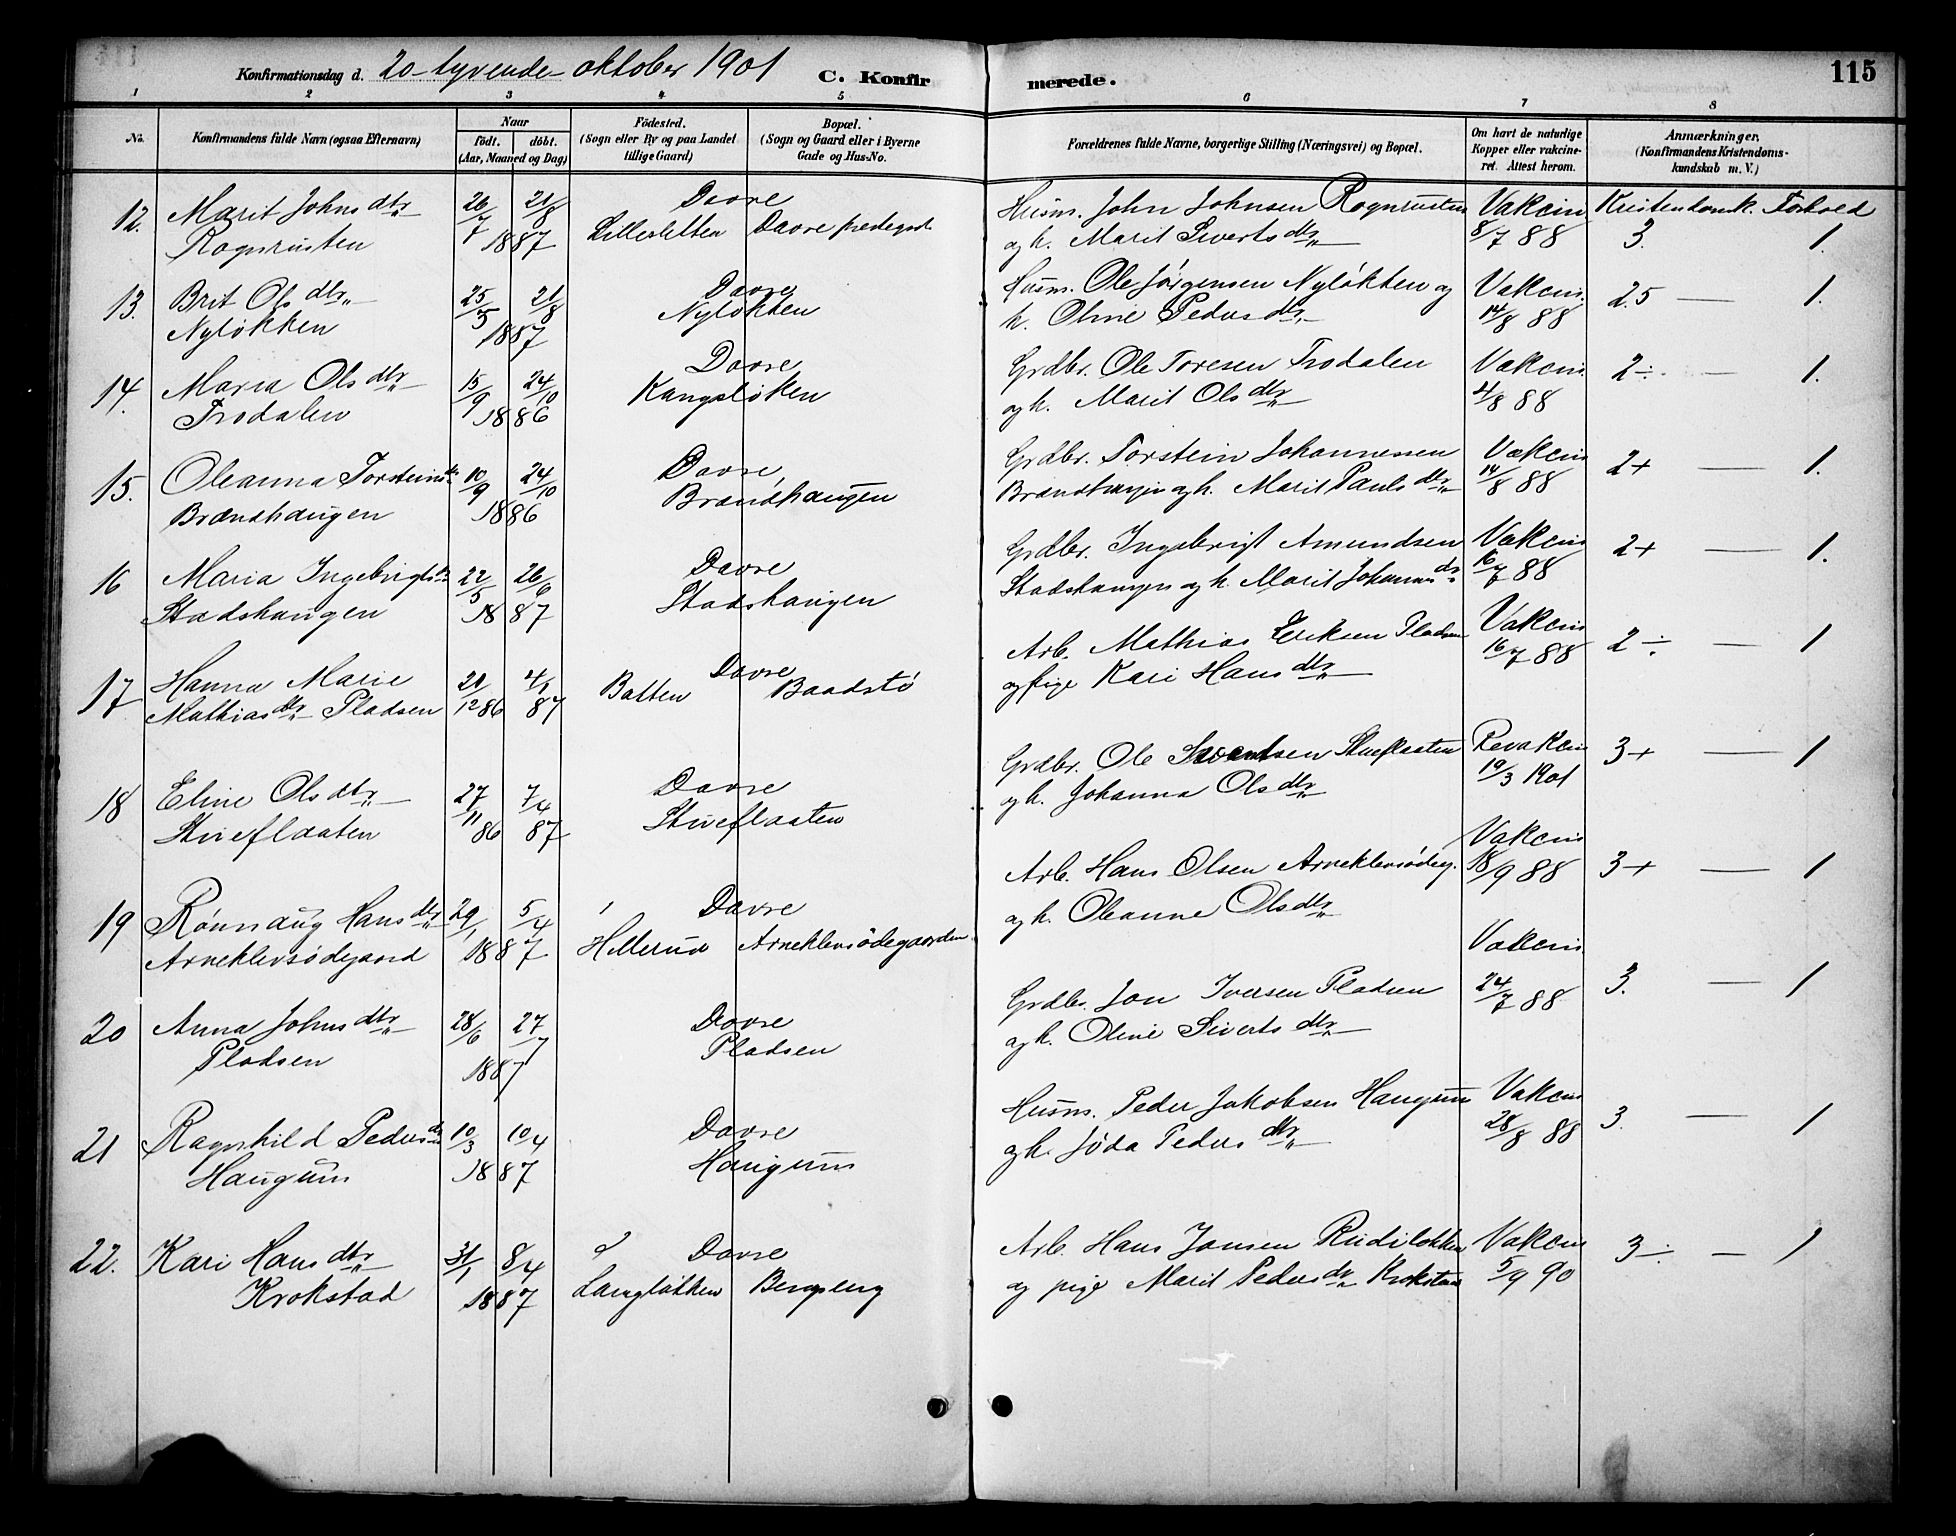 Konfirmationsdag d. 20 - tyvende - oktober 1901 C. Konfirmerede. 115
1 2 3 4 5 6 7 8
No. Konfirmandens fulde Navn (ogsaa Efternavn) Naar födt. döbt. (Aar, Maaned og Dag) Födested. (Sogn eller By og paa Landet tillige Gaard) Bopæl. (Sogn og Gaard eller i Byerne Gade og Hus-No. Forældrenes fulde Navne, borgerlige Stilling (Næringsvei) og Bopæl. Om havt de naturlige Kopper eller vakcineret. Attest herom. Anmærkninger, (Konfirmandens Kristendomskundskab m. V.)
12. Marit Johnsdtr 26/7 21/8 Dovre Husm. John Johnsen Rognrusten Vakcin Kristendomsk. Forhold
Rognrusten 1887 Lillesletten Dovre prestegd og h. Marit Sivertsdtr 8/7 88 3. 1.
13. Brit Olsdtr 25/5 21/8 Dovre Husm. Ole Jörgensen Nyløkken og Vakcin. 2.5 — 1.
Nyløkken 1887 Nyløkken h. Oline Pedersdtr 14/8 88
14. Maria Olsdtr 15/9 24/10 Dovre Grdbr. Ole Toresen Trodalen Vakcin. 2÷ — 1.
Trodalen 1886 Kongsløken og h. Marit Olsdtr 4/8 88
15. Oleanna Torsteinsdtr 10/9 24/10 Dovre, Grdbr. Torstein Johannessen Vakcin 2+ — 1.
Brændhaugen 1886 Brændhaugen Brændhaugen og h. Marit Paulsdtr 14/8 88
16 Maria Ingebrigtsdtr 22/5 26/6 Dovre Grdbr. Ingebrigt Amundsen Vakcin 2+ — 1.
Stadshaugen 1887 Stadshaugen Stadshaugen og h. Marit Johannesdtr 16/7 88
17 Hanna Marie 21/12 86 4/1 87 Dovre Arb. Mathias Eriksen Pladsen Vakcin 2÷ — 1
Mathiasdtr Pladsen Batten Baadstø og pige Kari Hansdtr 16/7 88
18 Eline Olsdtr 27/11 86 7/4 87 Dovre Grdbr. Ole Stueflaaten Revakcin 3+ — 1
Stueflaaten Stueflaaten og h. Johanna Olsdtr 19/3
19 Rønnaug Hansdtr 29/1 5/4 Dovre Arb. Hans Olsen Arneklevsødeg. Vakcin 3+ — 1
Arneklevsødegaard 1887 Hillerud Arneklevsødegaarden. og h. Oleanne Olsdtr 18/9 88
20 Anna Johnsdtr 28/6 27/7 Dovre Grdbr. Jon Iversen Pladsen Vakcin. 3. — 1
Pladsen 1887 Pladsen og h. Oline Sivertsdtr 24/7 88
21 Ragnhild Pedersdtr 10/3 10/4 Dovre Husm. Peder Jakobsen Haugum Vakcin 3. — 1
Haugum 1887 Haugum og h. Jøda Pedersdtr 28/8 88
22. Kari Hansdtr 31/1 8/4 Dovre Arb. Hans Jonsen Rudiløkken Vakcin 3÷ — 1
Krokstad 1887 Langløkken Bergseng og pige Marit Pedersdtr Krokstad 5/9 90